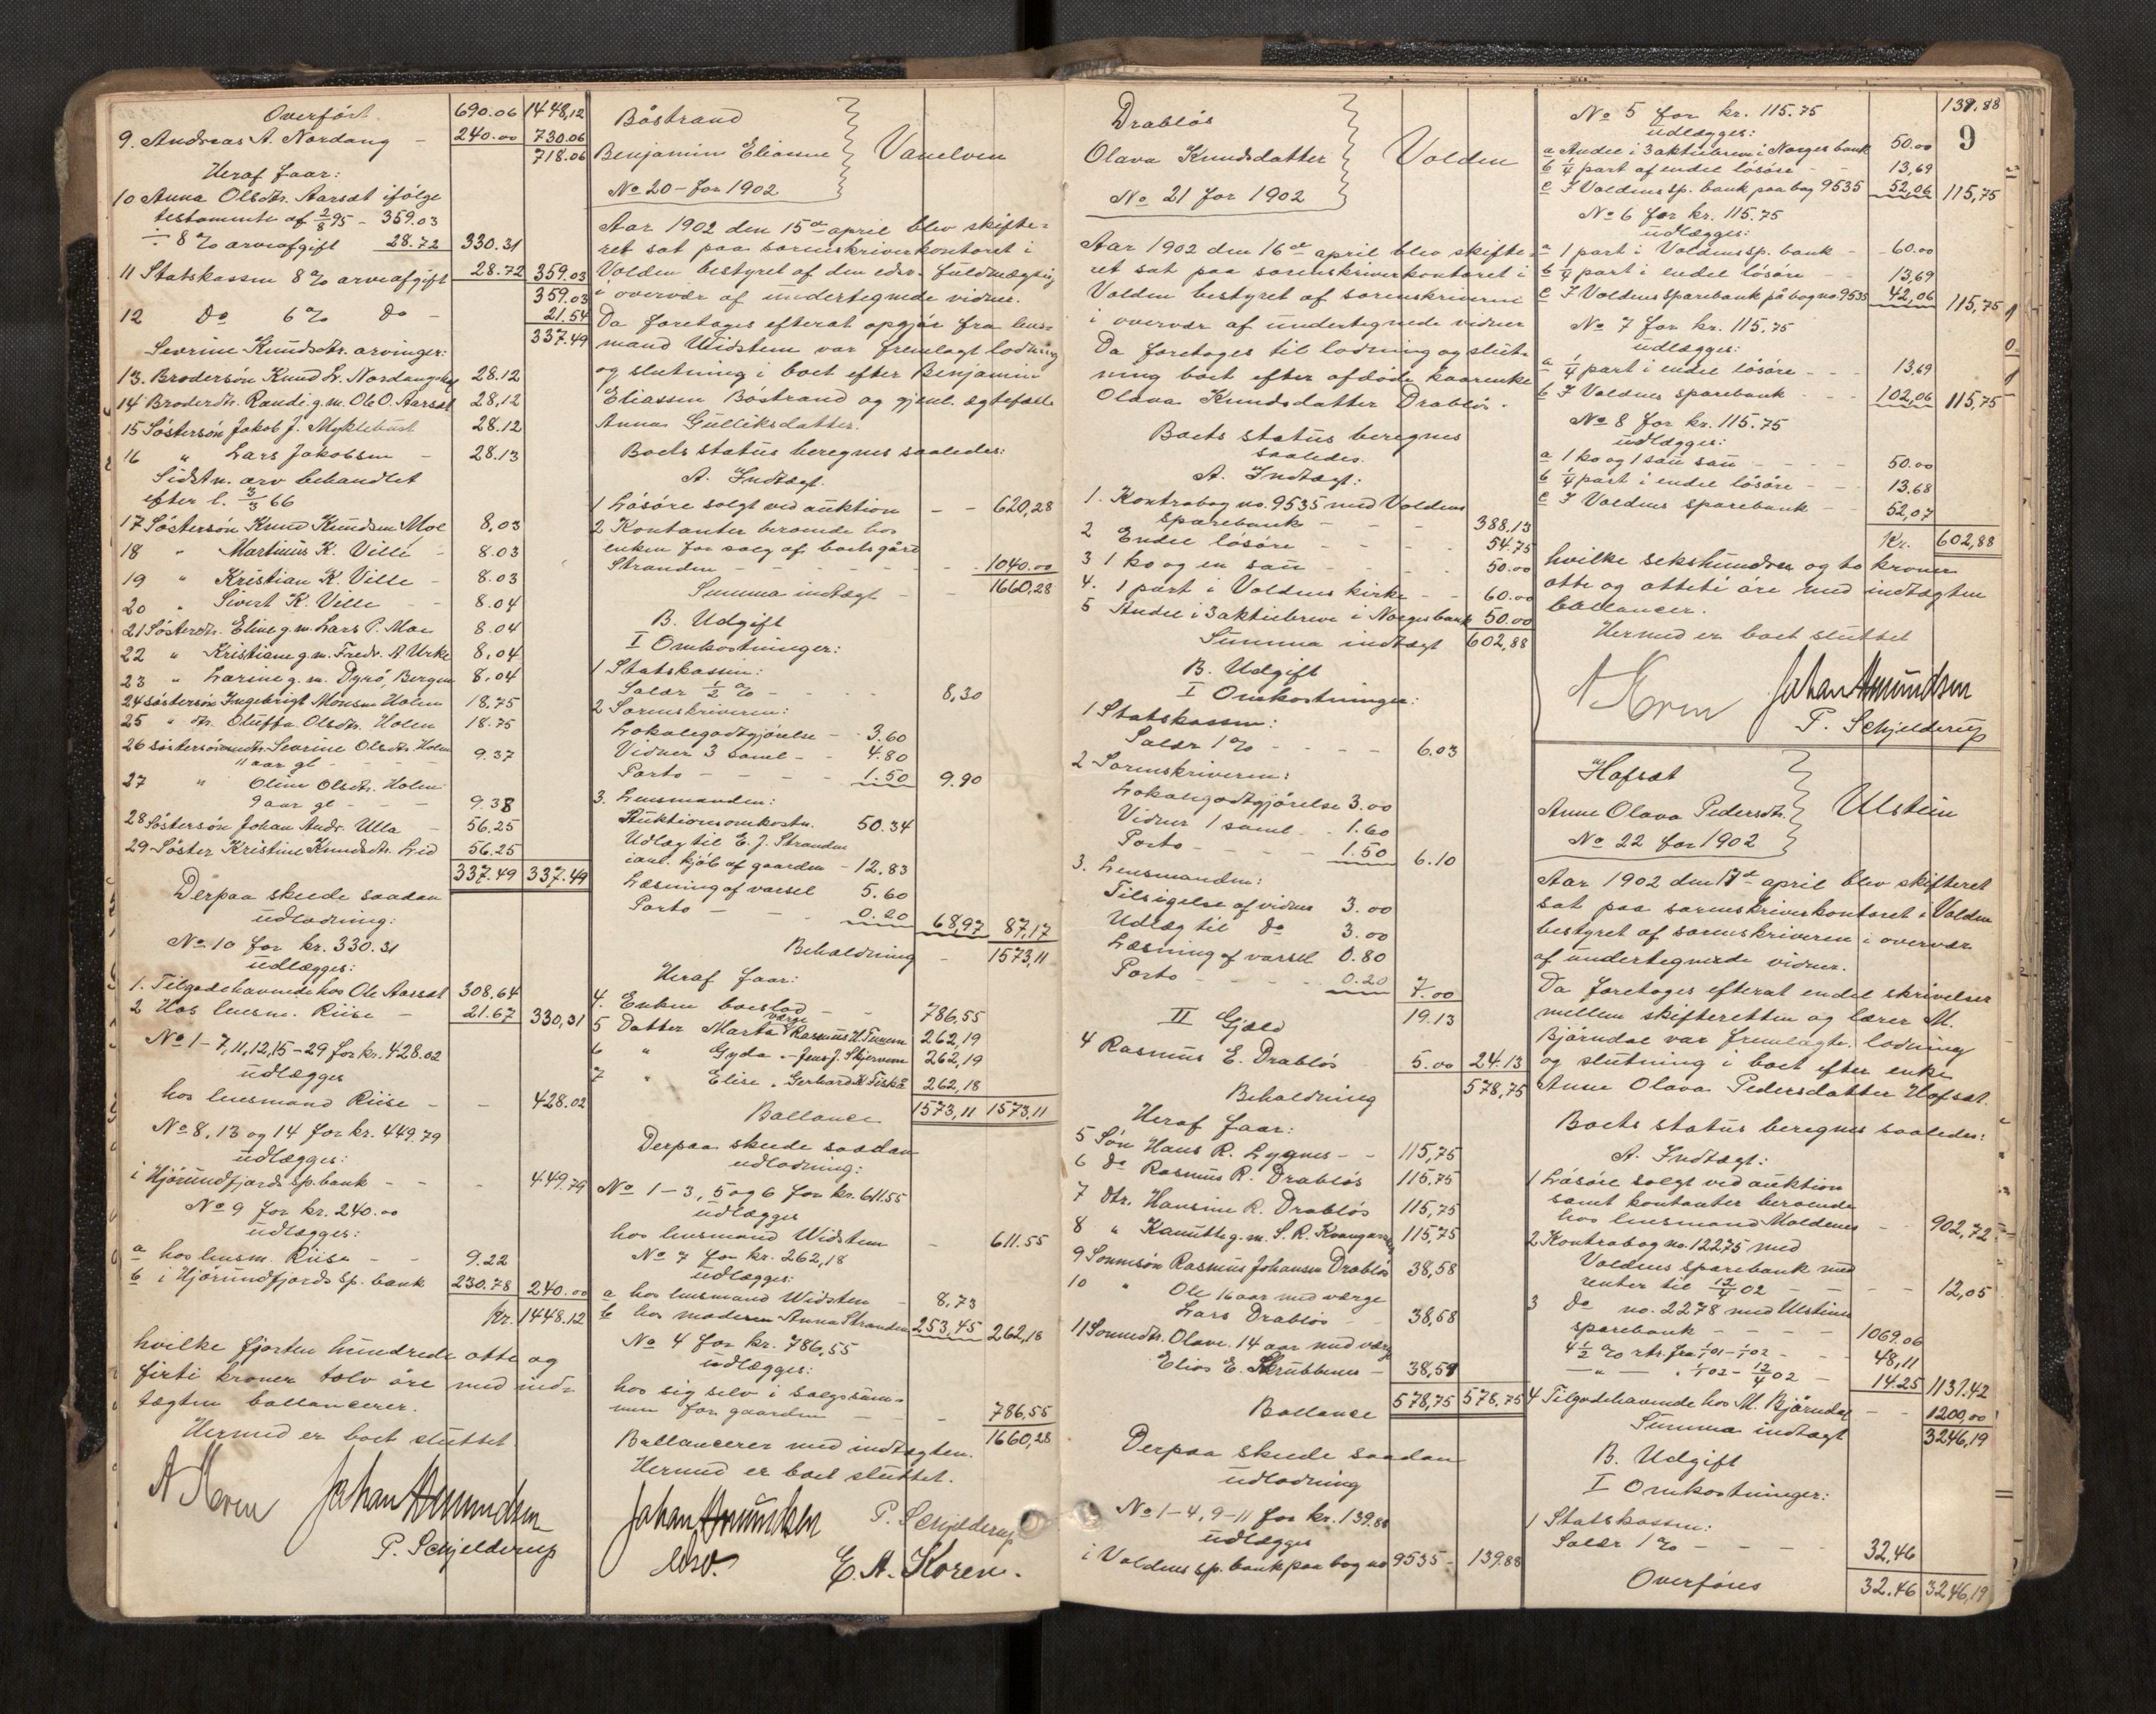 Overført 690.06 1448,12
9. Andreas A. Nordang - 240.00 730.06
718.06
Heraf faar:
10 Anna Olsdtr. Aarsæt ifølge
testamente af 2/8 95 - 359.03
÷ 8 % arveafgift 28.72 330.31
11 Statskassen 8 % arveafgift 28.72 359.03
359.03
12 do 6 % do - 21.54
337.49
Sevrine Knudsdtr. arvinger:
13. Brodersøn Knud L. Nordang 28.12
14 Broderdtr. Randi g.m. Ole O. Aarsæt 28,12
15 Søstersøn Jakob J. Myklebust 28.12
16 " Lars Jakobsen - 28.13
Sidstn. arv behandlet
efter l. 3/3 66
17 Søstersøn Knud Knudsen Moe 8,03
18 " Martinus K. Ville - 8.03
19 " Kristian K. Ville - 8.03
20 " Sivert K. Ville - 8.04
21 Søsterdtr. Eline g.m. Lars P. Moe 8.04
22 " Kristiane g.m. Fredr. A Urke 8,04
23 " Larine g.m. Dyrø, Bergen 8,04
24 søstersøn Ingebrigt Monsen Holen 18,75
25 " dtr. Oluffa Olsdtr. Holen 18.75
26 søstersønsdtr. Sevrine Olsdtr. Holen
11 aar gl - - - 9.37
27 " Oline Olsdtr. Holen
9 aar gl - - - 9.38
28 Søstersøn Johan Andr. Ulla - 56.25
29 Søster Kristine Knudsdtr. Lid 56.25
337.49 337.49
Derpaa skede saadan
udlodning:
No 10 for kr. 330.31
udlægges:
1. Tilgodehavende hos Ole Aarsæt 308,64
2 Hos lensm. Riise - 21.67 330,31
No 1-7, 11, 12, 15-29 for kr. 428.02
udlægges
hos lensmand Riise - - 428.02
No 8, 13 og 14 for kr. 449.79
udlægges:
i Hjørundfjords sp.bank - - - 449.79
No 9 for kr. 240.00
udlægges:
a hos lensm. Riise - - 9.22
b i Hjørundfjords sp. bank 230.78 240.00
kr. 1448.12
hvilke fjorten hundrede otte og
firti kroner tolv øre med ind-
tægten ballancerer.
Hermed er boet sluttet
A Koren Johan Amundsen
P. Schjelderup
Bøstrand
Benjamin Eliassen Vanelven
No 20 - for 1902
Aar 1902 den 15de april blev skifte-
ret sat paa sorenskriverkontoret i
Volden bestyret af den edsv. fuldmægtig
i overvær af undertegnede vidner.
Da foretages efterat opgjør fra lens-
mand Widsteen var fremlagt lodning
og slutning i boet efter Benjamin
Eliassen Bøstrand og gjenl. ægtefælle
Anna Gulliksdatter.
Boets status beregnes saaledes:
A. Indtægt.
1 Løsøre solgt ved auktion - - 620,28
2 Kontanter beroende hos
enken for salg af boets gård
Stranden - - - - - - 1040.00
Summa indtægt - - 1660,28
B. Udgift
I Omkostninger:
1 Statskassen:
Salær 1/2 % - - - - 8,30
2 Sorenskriveren:
Lokalegodtgjørelse - - 3.60
Vidner 3 saml - - 4.80
Porto - - - - 1.50 9,90
3. Lensmanden:
Auktionsomkostn. 50.34
Udlæg til E. J. Stranden
ianl. kjøb af gaarden - 12.83
Læsning af varsel 5.60
Porto - - - 0.20 68,97 87,17
Beholdning - 1573,11
Heraf faar:
4. Enken boeslod - - 786,55
5 Datter Marta værge Rasmus H. Tunem 262,19
6 " Gyda - Jens J. Skjerven 262,19
7 " Elise " Gerhard K. Fiskå 262,18
Ballance 1573,11 1573,11
Derpaa skede saadan
udlodning:
No 1-3, 5 og 6 for kr. 611.55
udlægges
hos lensmand Widsteen - 611.55
No 7 for kr. 262,18
udlægges:
a hos lensmand Widsteen - 8,73
b hos moderen Anna Stranden 253,45 262,18
No 4 for kr. 786,55
udlægges:
hos sig selv i salgssum-
men for gaarden - - - 786,55
Ballancerer med indtægten. 1660,28
Hermed er boet sluttet.
Johan Amundsen P. Schjelderup
edsv. E. A. Koren.
Drabløs
Olava Knudsdatter Volden
No 21 for 1902
Aar 1902 den 16de april blev skifte-
ret sat paa sorenskriverkontoret i
Volden bestyret af sorenskriveren
i overvær af undertegnede vidner
Da foretages til lodning og slut-
ning boet efter afdøde kaarenke
Olava Knudsdatter Drabløs.
Boets status beregnes
saaledes.
A. Indtægt:
1. Kontrabog no. 9535 med Voldens
sparebank - - - 388.13
2 Endel løsøre - - - - 54.75
3 1 ko og en sau - - - 50.00
4. 1 part i Voldens kirke - - 60.00
5 Andel i 3 aktiebreve i Norges bank 50.00
Summa indtægt 602,88
B. Udgift
I Omkostninger:
1 Statskassen:
Salær 1 % - - - - 6.03
2 Sorenskriveren:
Lokalegodtgjørelse 3.00
Vidner 1 saml. - - 1.60
Porto - - - - 1.50 6.10
3. Lensmanden:
Tilsigelse af vidner 3.00
Udlæg til do 3.00
Læsning af varsel 0.80
Porto - - - - 0.20 7.00
19.13
II Gjæld
4 Rasmus E. Drabløs 5.00 24.13
Beholdning 578,75
Heraf faar:
5 Søn Hans R. Lygnes - - 115,75
6 do Rasmus R. Drabløs 115,75
7 dtr. Hansine R. Drabløs 115,75
8 " Kanutte g.m. S. R. 115,75
9 Sønnesøn Rasmus Johansen Drabløs 38,58
10 " Ole 16 aar med værge
Lars Drabløs - - 38,58
11 Sønnedtr. Olave 14 aar med værge
Elias E. Skrubbenes - 38,59
Ballance 578,75 578,75
Derpaa skede saadan
udlodning
No 1-4, 9-11 for kr. 139.88
udlægges
i Voldens sp. bank paa bog no 9535 - 139.88
139,88
9
No 5 for kr. 115.75
udlægges:
a Andel i 3 aktiebreve i Norges bank 50.00
b 1/4 part af endel løsøre - - 13,69
c I Voldens sp. bank paa bog 9535 52,06 115,75
No 6 for kr. 115.75
udlægges:
a 1 part i Voldens sp. bank - 60.00
b 1/4 part i endel løsøre - - 13,69
c I Voldens sparebank på bog no. 9535 42,06 115,75
No 7 for kr. 115,75
udlægges:
a 1/4 part i endel løsøre - - - 13,69
b I Voldens sparebank - - - 102,06 115,75
No 8 for kr. 115.75
udlægges:
a 1 ko og 1 sau sau - - - - 50.00
b 1/4 part i endel løsøre - - - 13,68
c I Voldens sparebank - - 52,07
Kr. 602,88
hvilke sekshundrede og to kroner
otte og otteti øre med indtægten
ballancer.
Hermed er boet sluttet
A Koren Johan Amundsen
P. Schjelderup
Hofsæt
Anne Olava Pedersdtr. Ulstein
No 22 for 1902
Aar 1902 den 17de april blev skifteret
sat paa sorenskriverkontoret i Volden
bestyret af sorenskriveren i overvær
af undertegnede vidner.
Da foretages efterat endel skrivelser
mellem skifteretten og lærer M.
Bjørndal var fremlagte, lodning
og slutning i boet efter enke
Anne Olava Pedersdatter Hofsæt.
Boets status beregnes saaledes:
A. Indtægt:
1 Løsøre solgt ved auktion
samt kontanter beroende
hos lensmand Moldenes - - 902,72
2 Kontrabog no. 12275 med
Voldens sparebank med
renter til 12/4 02 - - - - 12,05
3 do no. 2278 med Ulstein
sparebank - - - - 1069.06
4 1/2 % rtr. fra 1/1 01 - 1/1 02 - - 48,11
- " - " 1/1 02 - 12/4 02 - 14.25 1131.42
4 Tilgodehavende hos M. Bjørndal - - 1200,00
Summa indtægt 3246,19
B. Udgift
I Omkostninger:
1 Statskassen:
Salær 1 % - - - - 32,46
Overføres 32.46 3246,19